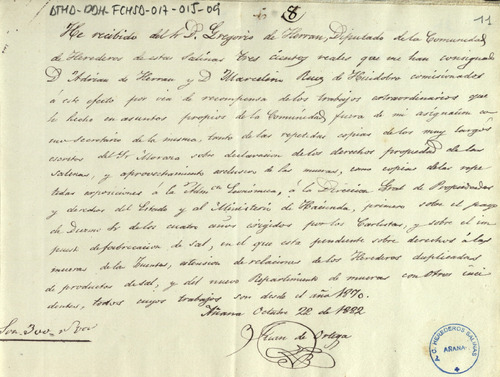 ATHA-DDH-FCHSD-017-015-09
8
11
He recibido del Sr. D. Gregorio de Herran, Diputado de la Comunidad
de Herederos de estas Salinas tres cientos reales que me han consignado
D. Adrian de Herran y D. Marcelino Ruiz de Huidobro comisionados
á este efecto por via de recompensa de los trabajos extraordinarios que
he hecho en asuntos propios de la Comunidad fuera de mi asignacion co
mo Secretario de la misma, tanto de las repetidas copias de los muy largos
escritos del Sr. Morana sobre declaracion de los derechos propiedad de las
Salinas, y aprovechamiento exclusivo de las mueras, como copias de las repe
tidas exposiciones á la Admon. Economica, á la Direccion Gral. de Propiedades
y derechos del Estado y al Ministerio de Hacienda, primero sobre el pago
de de los cuatro años exigidos por los Carlistas, y sobre el im
puesto de fabricacion de sal, en el que esta pendiente sobre derechos á las
mueras de la Fuente, estension de relaciones de los Herederos duplicadas
de productos de sal, y del nuevo Repartimiento de mueras con otros inci
dentes, todos cuyos trabajos son desde el año 1870.
Añana Octubre 22 de 1882
Juan de Ortega
Son 300 rs. von.
A.C. HEREDEROS SALINAS
AÑANA